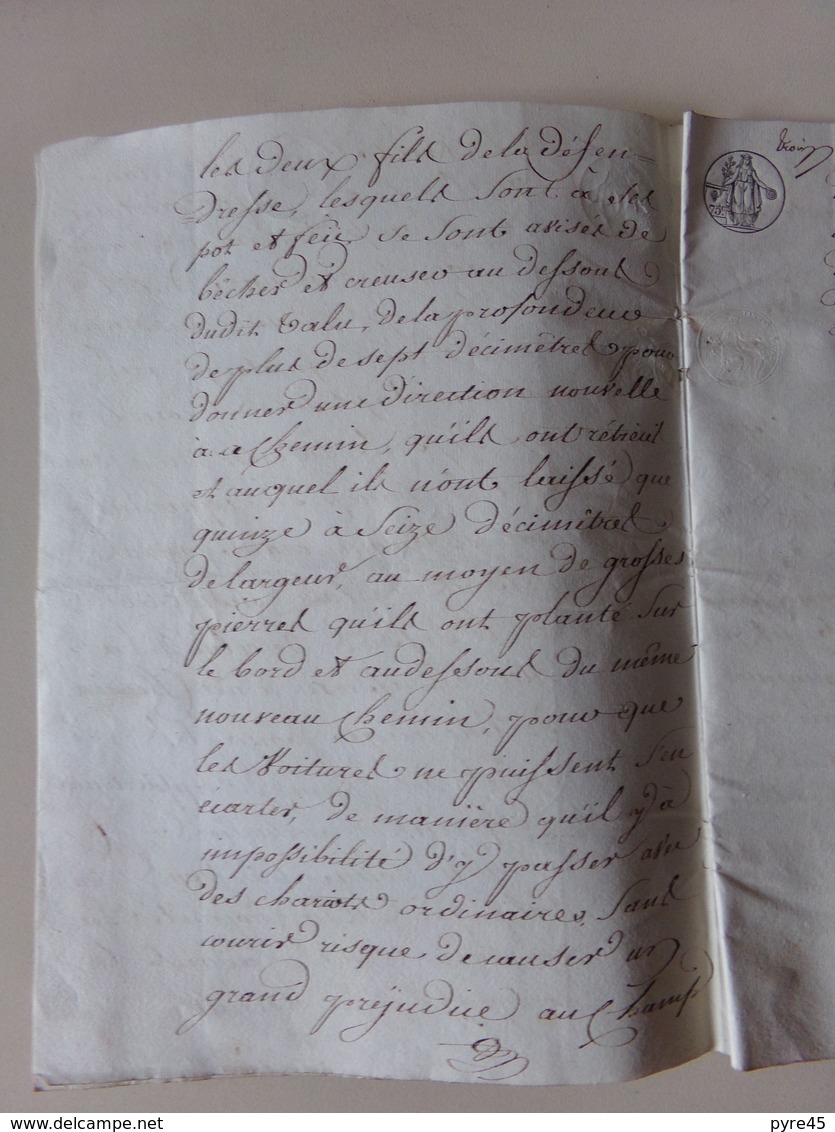 les deux fils de la défen-
dresse, lesquels sont à ses
pot et feu se sont avisés de
bêcher et creuser au dessous
dudit talu, de la profondeur
de plus de sept décimêtres pour
donner une direction nouvelle
à a Chemin, qu'ils ont rétrécit
et auquel ils n'ont laissé que
quinze à Seize décimêtres
de largeur, au moyen de grosses
pierres qu'ils ont planté sur
le bord et audessous du même
nouveau Chemin, pour que
les Voitures ne puissent s'en
écarter, de manière qu'il y à
impossibilité d'y passer avec
des chariots ordinaires, sans
courir risque de causer un
grand préjudice au Champ
75
delcampe.net
pyre45